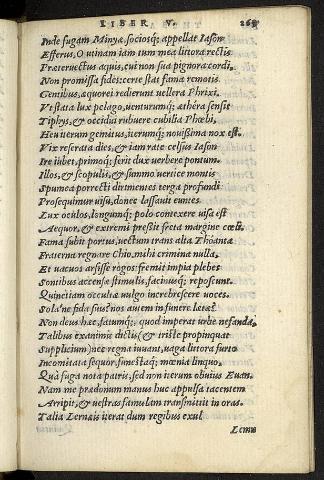 LIBER V. 268
Inde fugam Minyæ, sociosq; appellat Iason
Efferus, O utinam iam tum mea littora rectis
Præteruectus aquis, cui non sua pignora cordi,
Non promissa fides: certe stat fama remotis
Gentibus, æquorei redierunt uellera Phrixi.
Vt stata lux pelago, uenturumq; æthera sensit
Tiphys, & occidui rubuere cubilia Phœbi,
Heu iterum gemitus, iterumq; nouissima nox est.
Vix reserata dies, & iam rate celsus Iason
Ire iubet, primoq; ferit dux uerbere pontum.
Illos, & scopulis, & summo uertice montis
Spumea porrecti dirimentes terga profundi
Prosequimur uisu, donec lassauit euntes
Lux oculos, longumq; polo contexere uisa est
Aequor, & extremi pressit freta margine cœli.
Fama subit portus, uectum trans alta Thoanta
Fraterna regnare Chio, mihi crimina nulla,
Et uacuos arsisse rogos: fremit impia plebes
Sontibus accensæ stimulis, facinusq; reposcunt.
Quinetiam occultæ uulgo increbrescere uoces.
Sola'ne fida suis? nos autem in funere lætæ?
Non deus hæc, fatumq;. quod imperat urbe nefanda.
Talibus exanimis dictis (& triste propinquat
Supplicium) nec regna iuuant, uaga littora furto
Incomitata sequor, funestaq; mœnia linquo,
Quà fuga nota patris, sed non iterum obuius Euan.
Nam me prædonum manus huc appulsa tacentem
Arripit, & uestras famulam transmittit in oras.
Talia Lernæis iterat dum regibus exul
Lemn